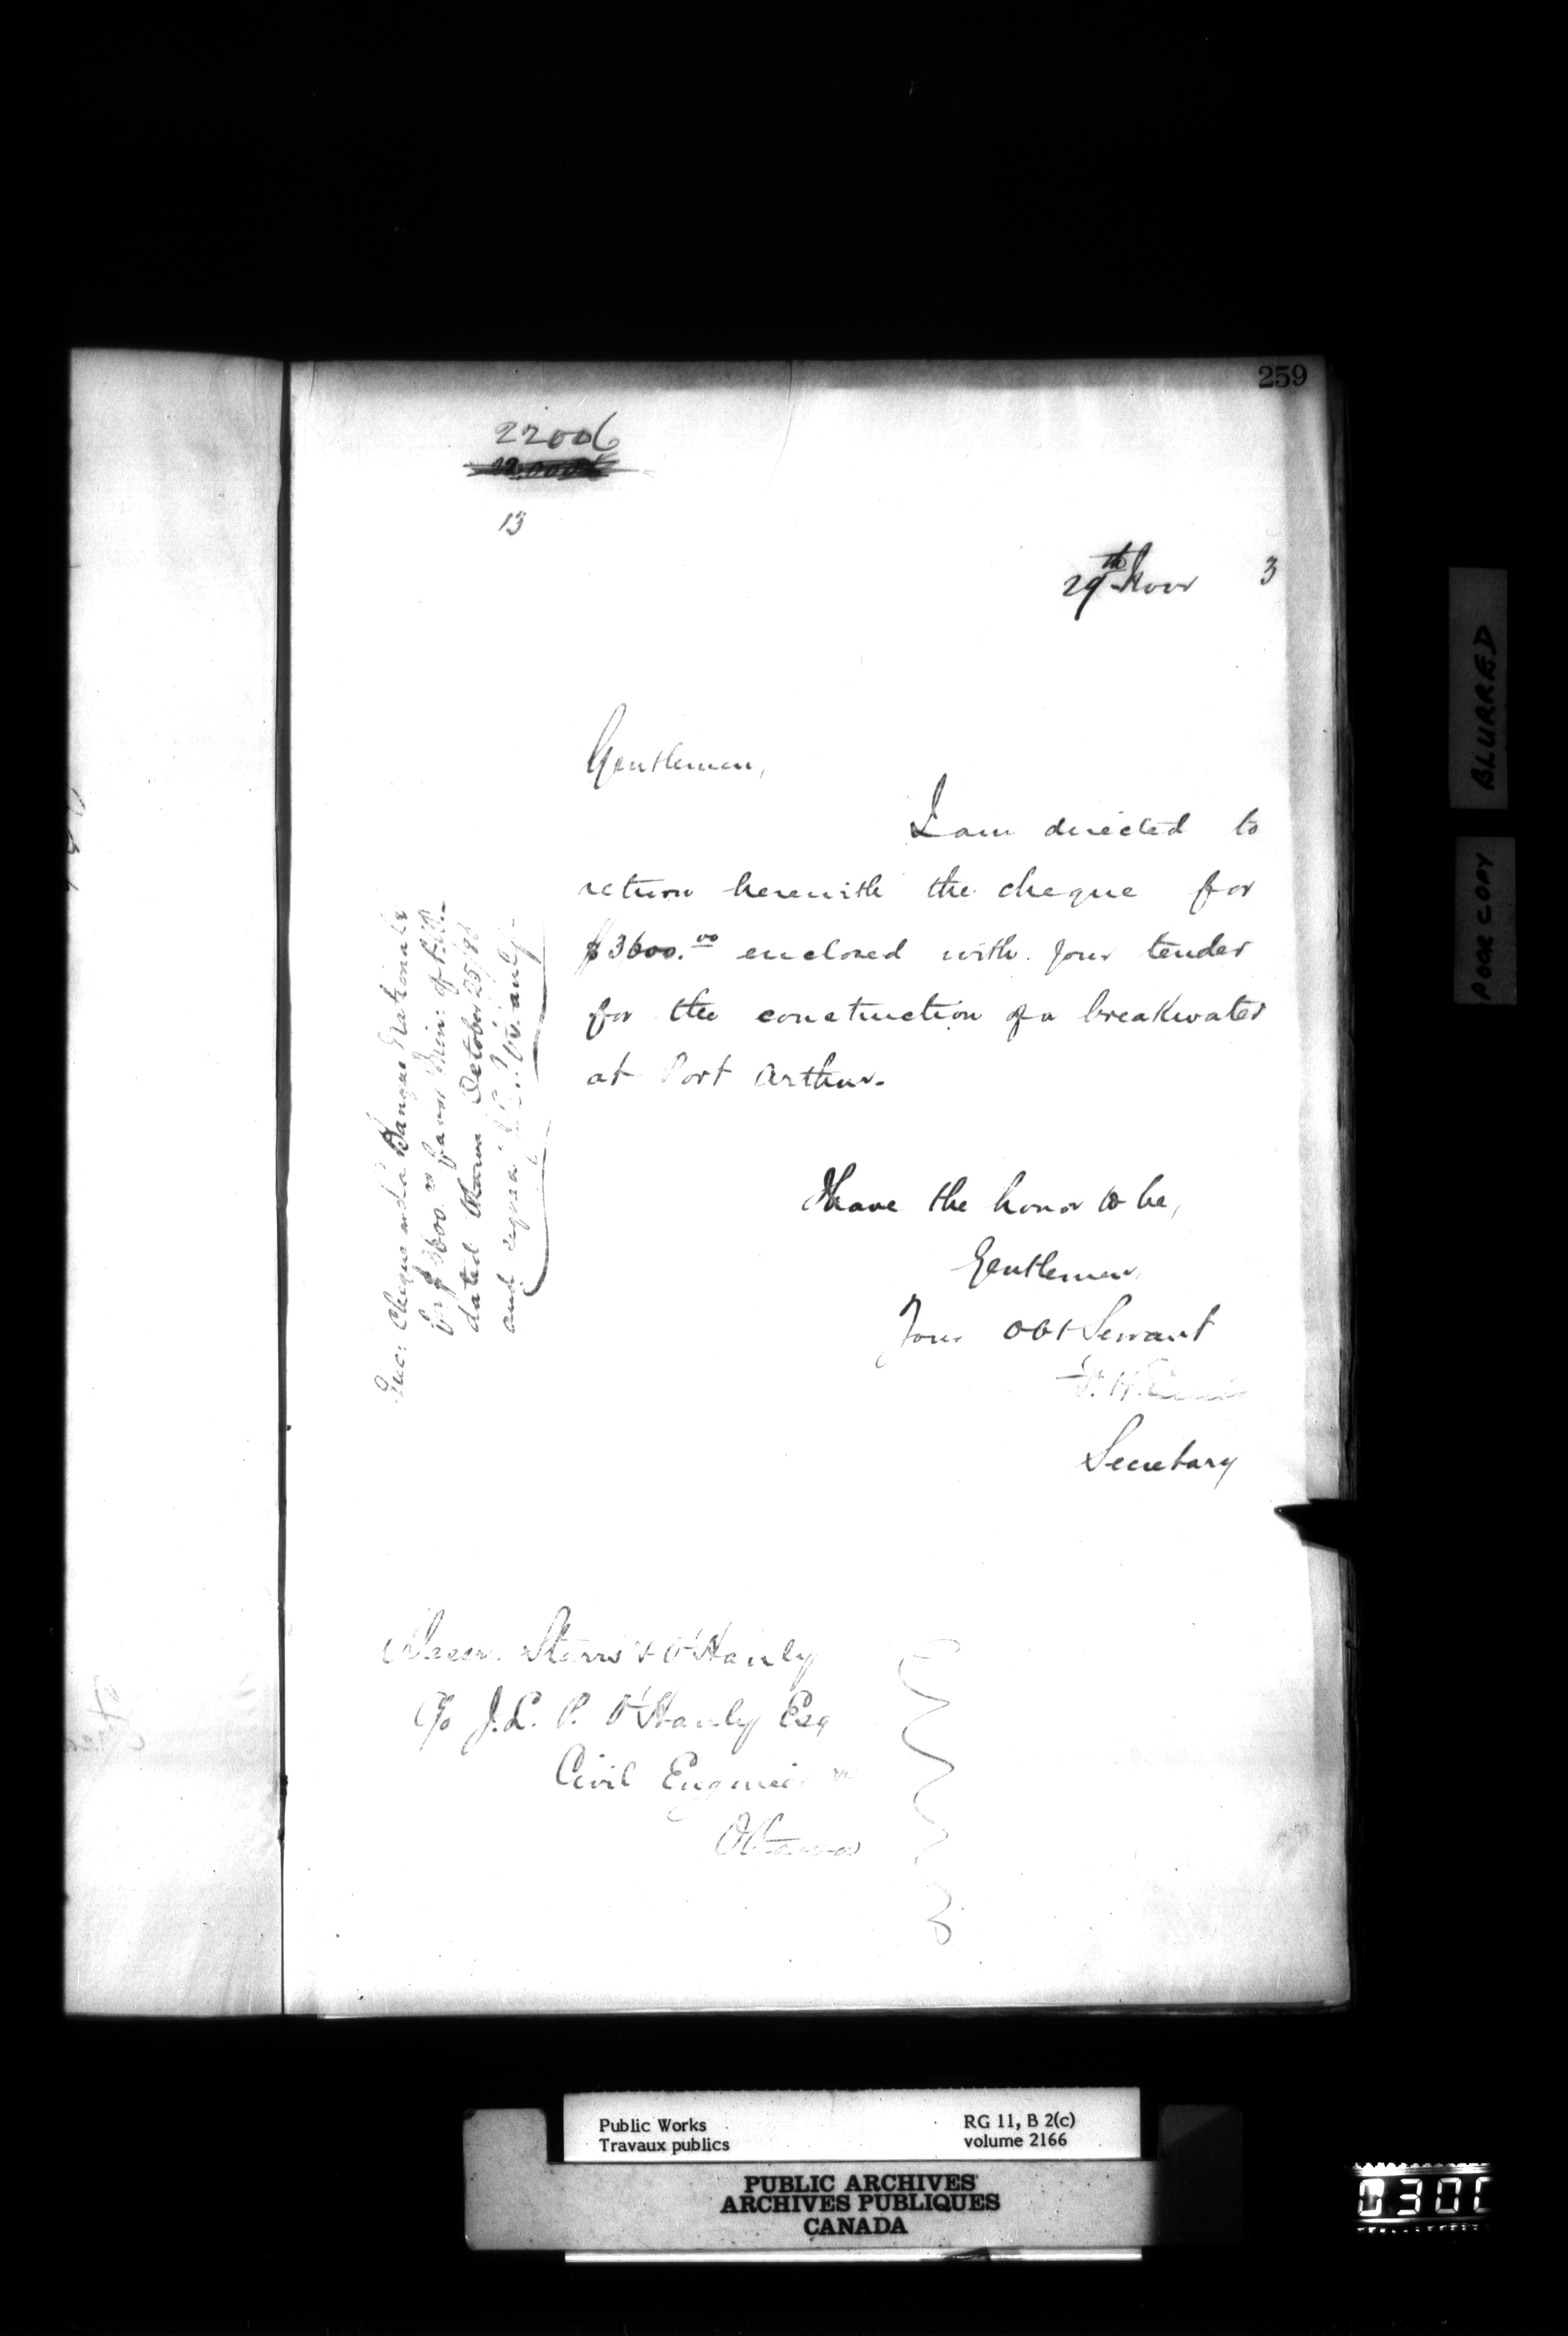 259
22006
13
29th Novr 3
Gentlemen,
I am directed to
return herewith the cheque for
$3600.00 enclosed with your tender
for the construction of a breakwater
at Port Arthur.
Ihave the honor to be,
Gentlemen
Your Obt Servant
Secretary
Enc: Cheque on La Banque Nationale
for $3600.00 favor Min: of
dated Ottawa October 25/
and signed J.L.P. O'Hanly
Messrs. & O'Hanly
C/o J.L. P. O'Hanly Esq
Civil Engineer
Ottawa
BLURRED
POOR COPY
Public Works
Travaux publics
RG 11, B 2(c)
volume 2166
PUBLIC ARCHIVES
ARCHIVES PUBLIQUES
CANADA